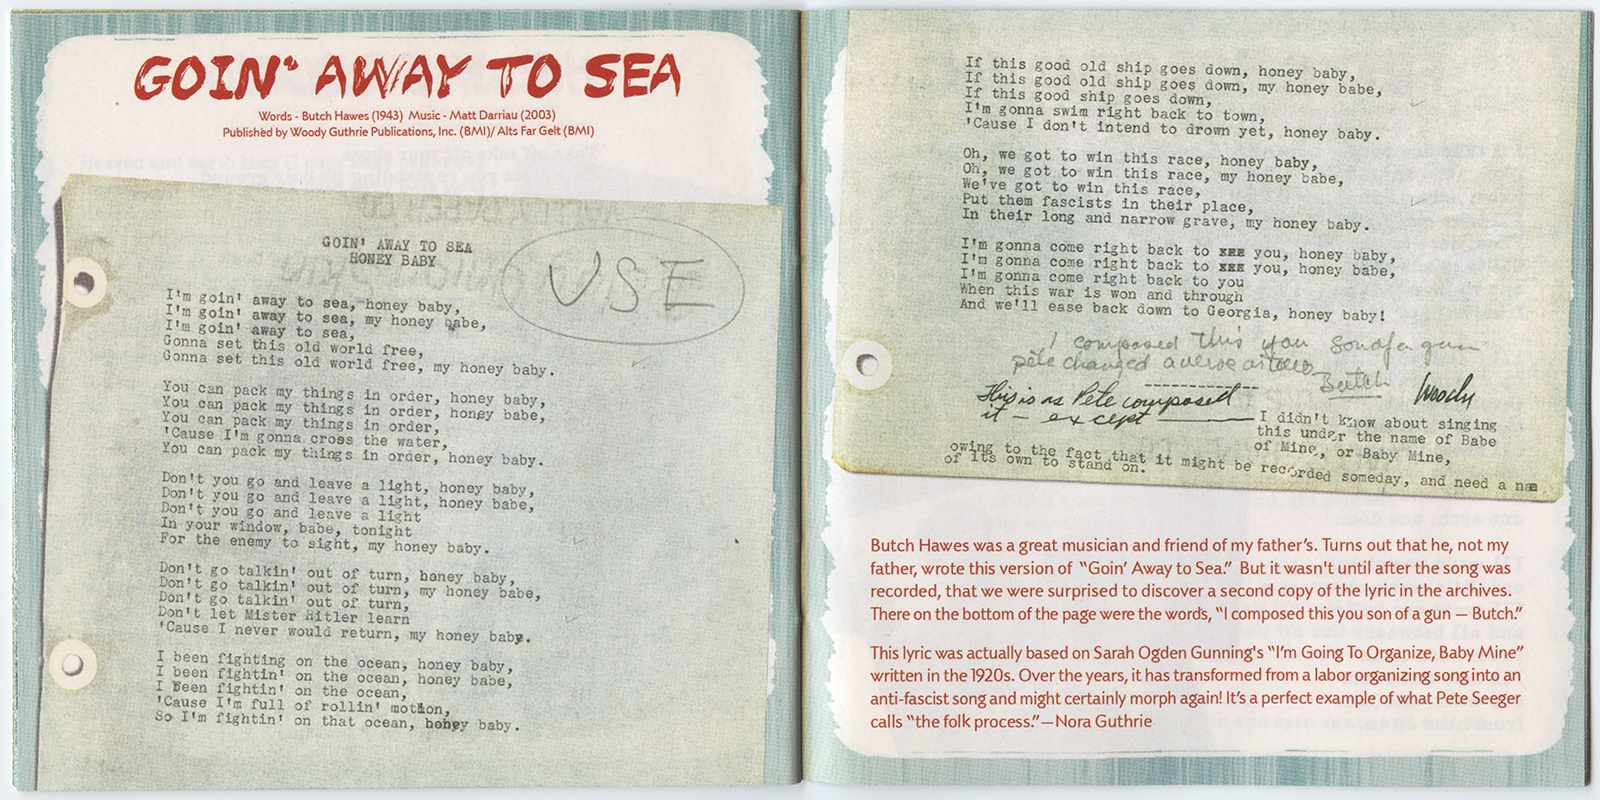 GOIN' AWAY TO SEA
Words - Butch Hawes (1943) Music - Matt Darriau (2003)
Published by Woody Guthrie Publications, Inc. (BMI)/ Alts Far Gelt (BMI)
GOIN' AWAY TO SEA
HONEY BABY
USE
I'm goin' away to sea, honey baby,
I'm goin' away to sea, my honey babe,
I'm goin' away to sea,
Gonna set this old world free,
Gonna set this old world free, my honey baby.
You can pack my things in order, honey baby,
You can pack my things in order, honey babe,
You can pack my things in order,
'Cause I'm gonna cross the water,
You can pack my things in order, honey baby.
Don't you go and leave a light, honey baby,
Don't you go and leave a light, honey babe,
Don't you go and leave a light
In your window, babe, tonight
For the enemy to sight, my honey baby.
Don't go talkin' out of turn, honey baby,
Don't go talkin' out of turn, my honey babe,
Don't go talkin' out of turn,
Don't let Mister Hitler learn
'Cause I never would return, my honey baby.
I been fighting on the ocean, honey baby,
I been fightin' on the ocean, honey babe,
I Been fightin' on the ocean,
'Cause I'm full of rollin' motion,
So I'm fightin' on that ocean, honey baby.
If this good old ship goes down, honey baby,
If this good old ship goes down, my honey babe,
If this good ship goes down,
I'm gonna swim right back to town,
'Cause I don't intend to drown yet, honey baby.
Oh, we got to win this race, honey baby,
Oh, we got to win this race, my honey babe,
We've got to win this race,
Put them fascists in their place,
In their long and narrow grave, my honey baby.
I'm gonna come right back to xxx you, honey baby,
I'm gonna come right back to xxx you, honey babe,
I'm gonna come right back to you
When this war is won and through
And we'll ease back down to Georgia, honey baby!
I composed this you sonofa gun
pete changed a verse
Butch
Woody
This is as Pete composed
it — except
I didn't know about singing
this under the name of Babe
of Mine, or Baby Mine,
owing to the fact that it might be recorded someday, and need a
of its own to stand on.
Butch Hawes was a great musician and friend of my father's. Turns out that he, not my
father, wrote this version of "Goin' Away to Sea." But it wasn't until after the song was
recorded, that we were surprised to discover a second copy of the lyric in the archives.
There on the bottom of the page were the words, "I composed this you son of a gun — Butch."
This lyric was actually based on Sarah Ogden Gunning's "I'm Going To Organize, Baby Mine"
written in the 1920s. Over the years, it has transformed from a labor organizing song into an
anti-fascist song and might certainly morph again! It's a perfect example of what Pete Seeger
calls "the folk process."—Nora Guthrie